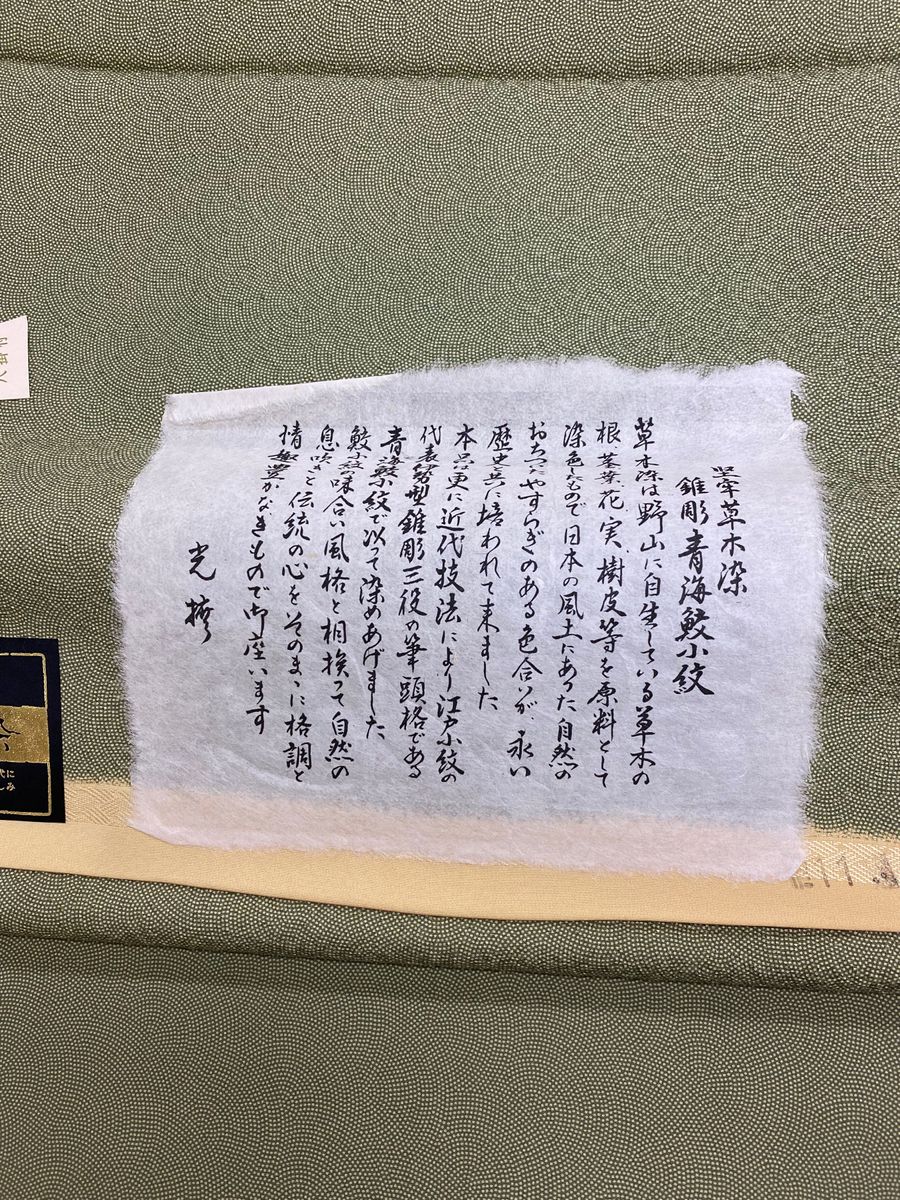 堅牢草木染
錐彫 青海鮫小紋
草木染は野山に自生している草木の
根、茎、葉、花、実、樹皮等を原料として
染色したもので日本の風土にあった自然の
おちついたやすらぎのある色合いが、永い
歴史と共に培われて来ました
本品は更に近代技法により江戸小紋の
代表伊勢型錐彫三役の筆頭格である
青海鮫小紋で以って染めあげました
鮫小紋の味合い風格と相挨って自然の
息吹きと伝統の心をそのまゝに格調と
情趣豊かなきもので御座います
光
代に
しみ
11